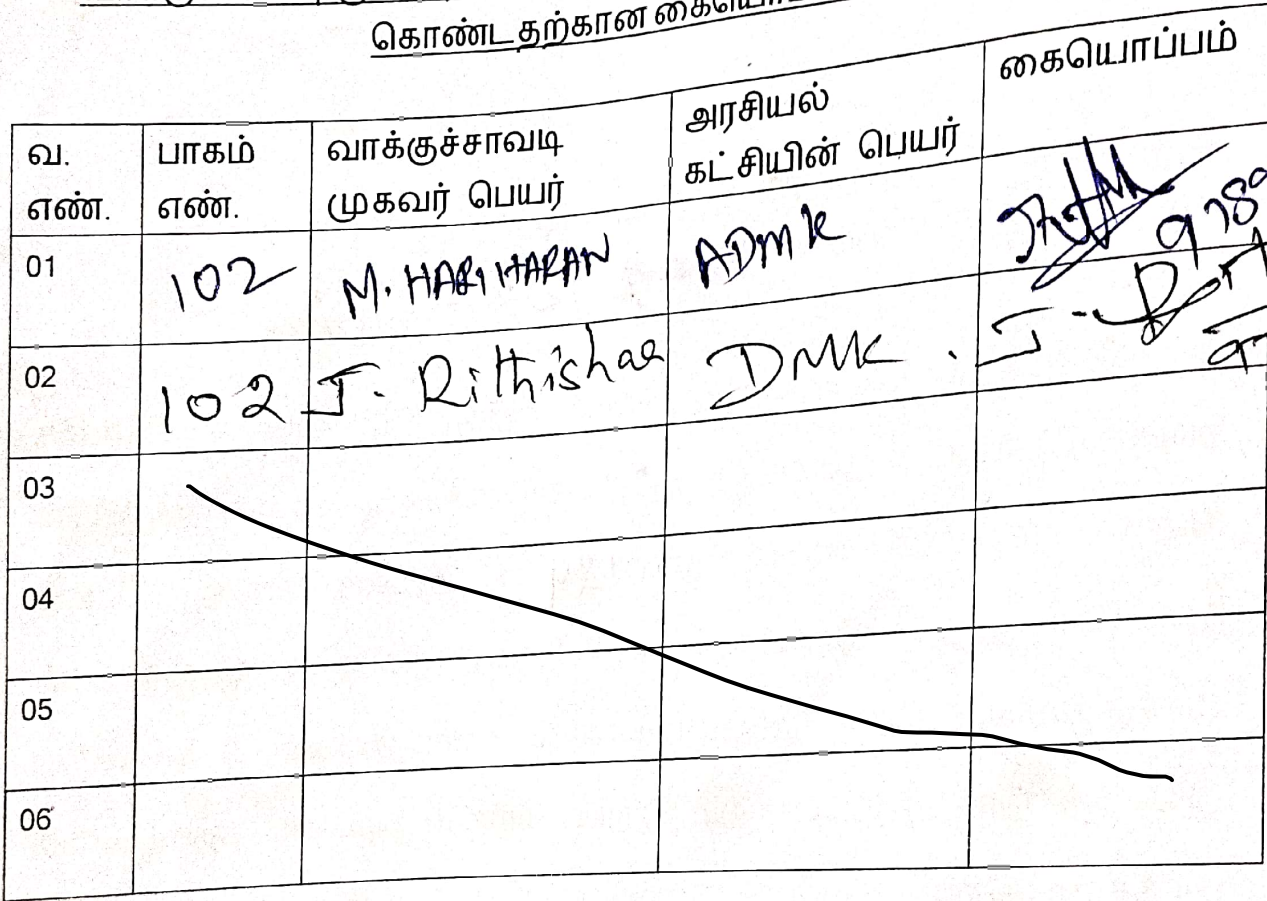 கொண்டதற்கான
வ. எண்.	பாகம் எண்.	வாக்குச்சாவடி முகவர் பெயர்	அரசியல் கட்சியின் பெயர்	கையொப்பம்
01	102	M. HARIHARAN	ADMK
02	102	J. Rithishae	DMK.
03
04
05
06